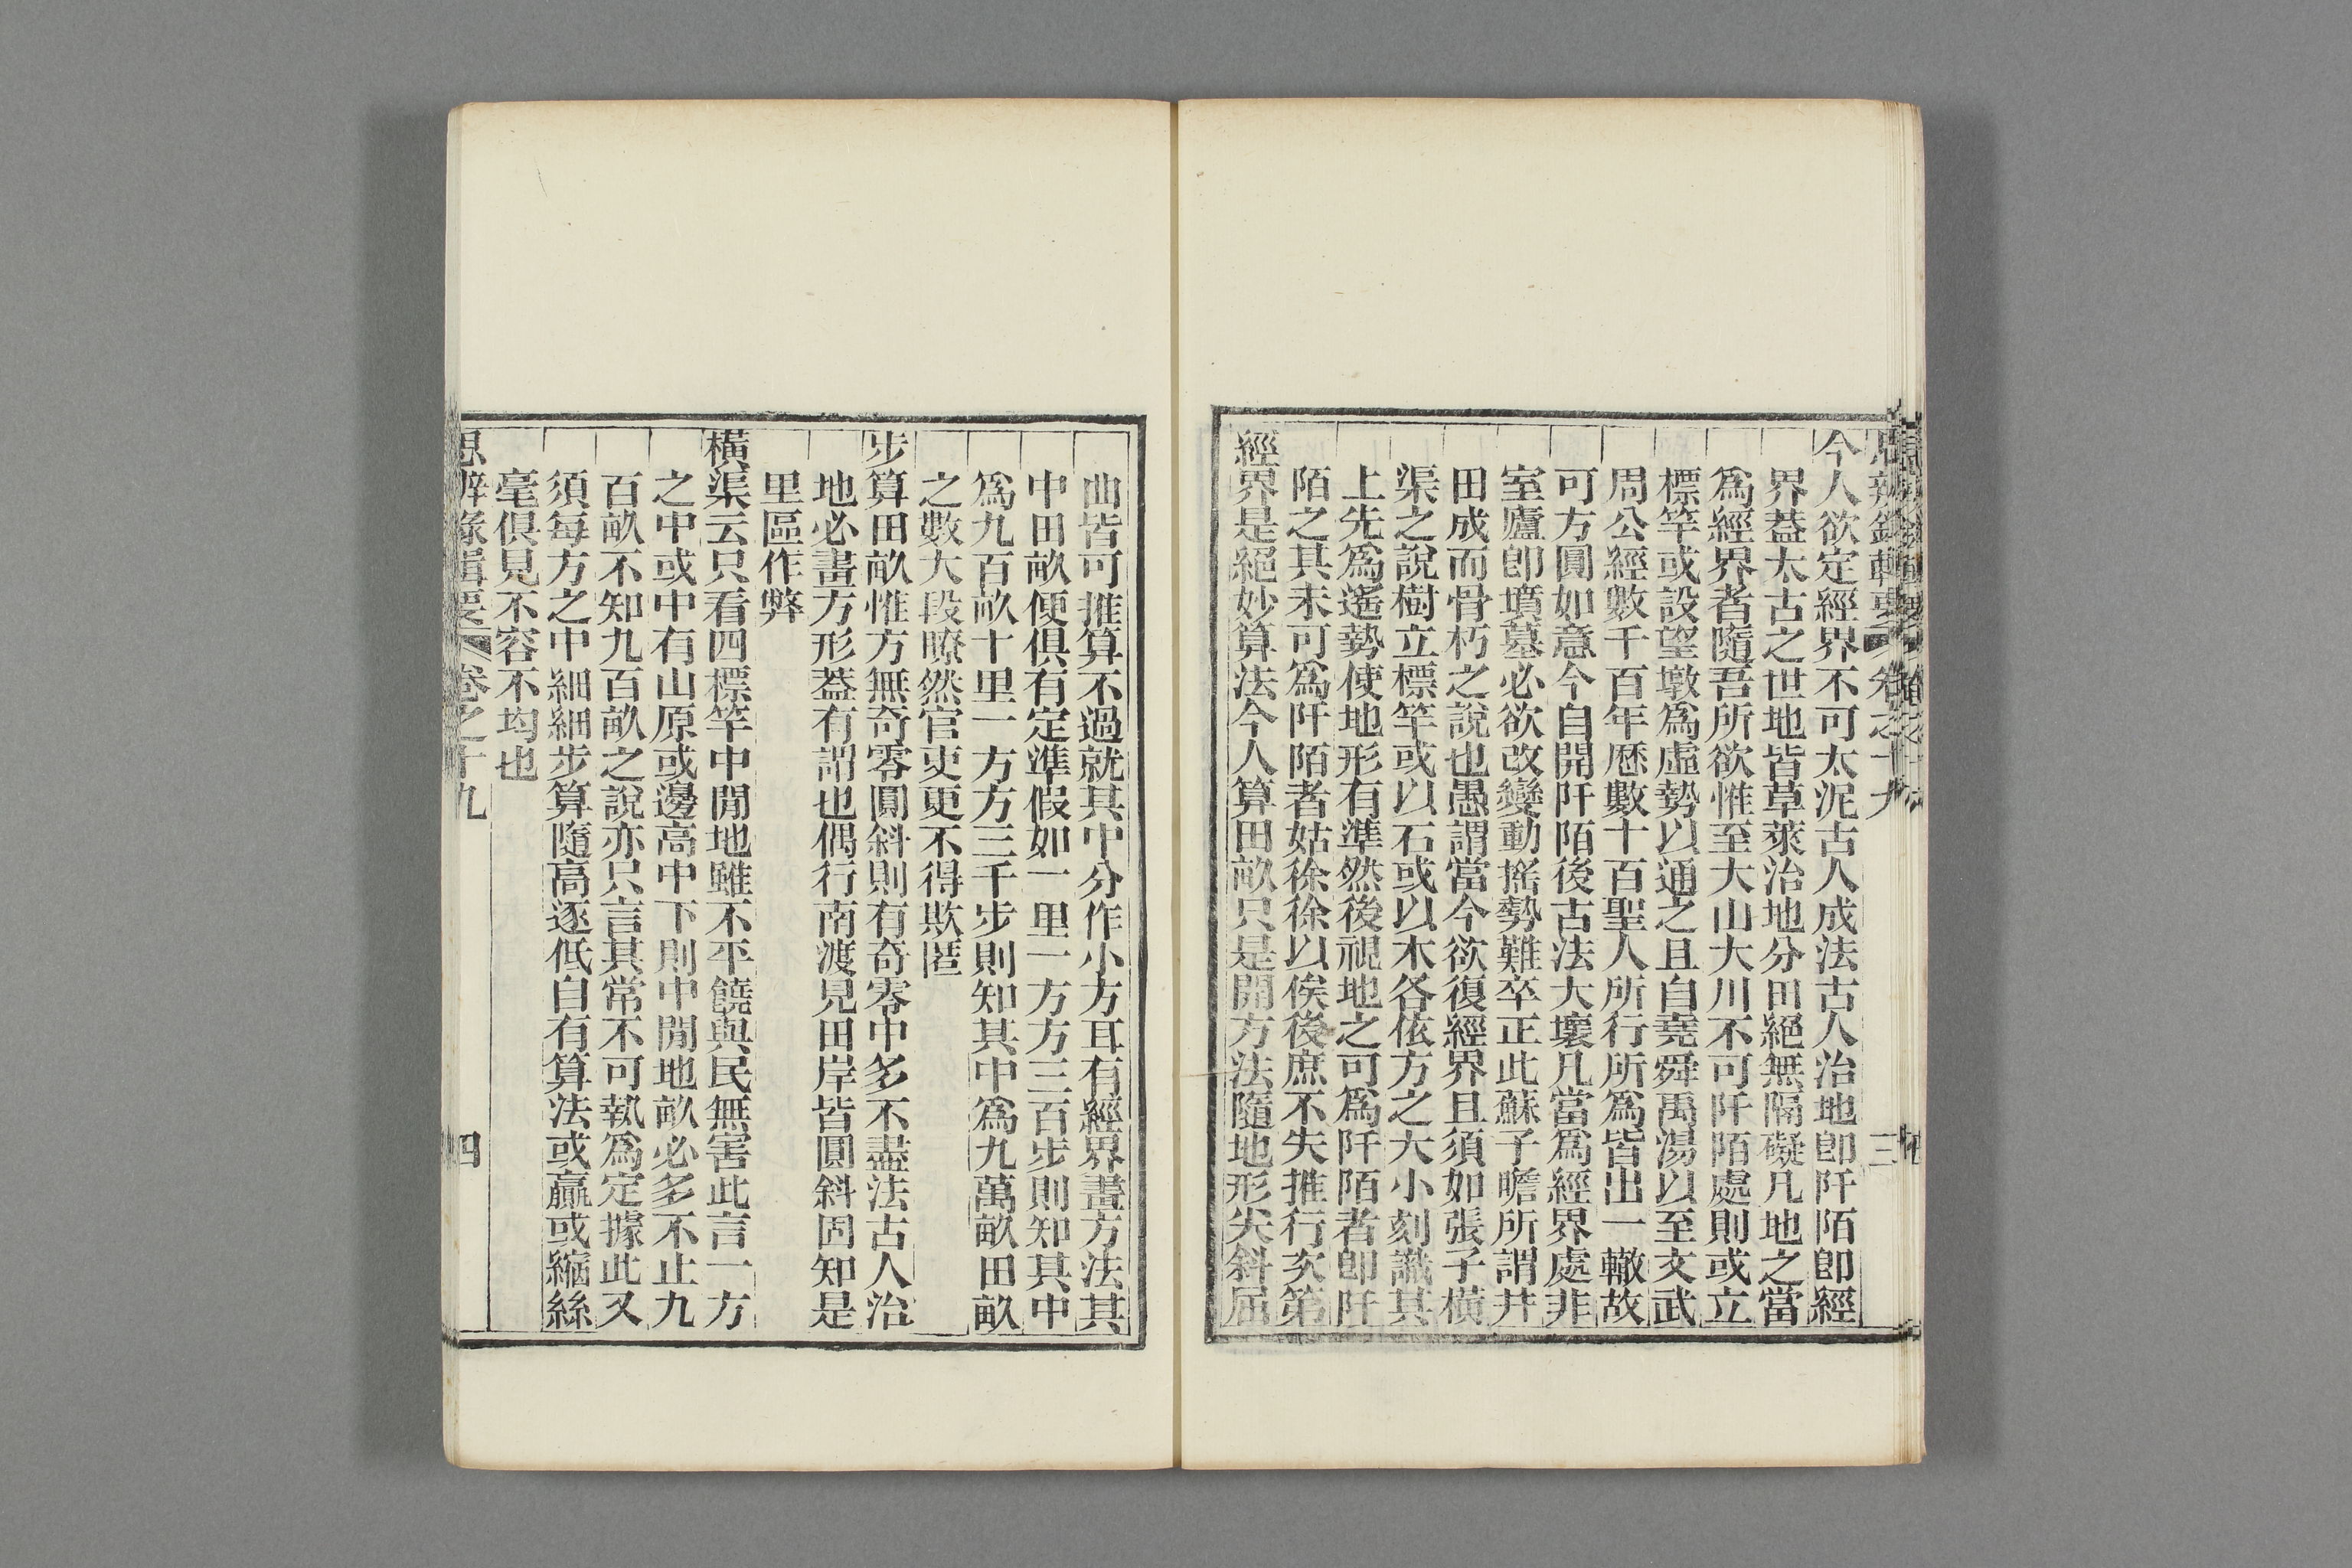 思辨錄輯要 卷之十九 三
今人欲定經界不可太泥古人成法古人治地卽阡陌卽經
界葢太古之世地皆草萊治地分田絕無隔礙凡地之當
爲經界者隨吾所欲惟至大山大川不可阡陌處則或立
標竿或設望墩爲虛勢以通之且自堯舜禹湯以至文武
周公經數千百年歷數十百聖人所行所爲皆出一轍故
可方圓如意今自開阡陌後古法大壞凡當爲經界處非
室廬卽墳墓必欲改變動搖勢難卒正此蘇子瞻所謂井
田成而骨朽之說也愚謂當今欲復經界且須如張子橫
渠之說樹立標竿或以石或以木各依方之大小刻識其
上先爲遙勢使地形有準然後視地之可爲阡陌者卽阡
陌之其未可爲阡陌者姑徐徐以俟後庶不失推行次第
經界是絕妙算法今人算田畝只是開方法隨地形尖斜屈
曲皆可推算不過就其中分作小方耳有經界畫方法其
中田畝便俱有定準假如一里一方方三百步則知其中
爲九百畝十里一方方三千步則知其中爲九萬畝田畝
之數大段瞭然官吏更不得欺匿
步算田畝惟方無奇零圓斜則有奇零中多不盡法古人治
地必畫方形葢有謂也偶行南渡見田岸皆圓斜固知是
里區作弊
橫渠云只看四標竿中閒地雖不平饒與民無害此言一方
之中或中有山原或邊高中下則中閒地畝必多不止九
百畝不知九百畝之說亦只言其常不可執爲定據此又
須每方之中細細步算隨高逐低自有算法或贏或縮絲
毫俱見不容不均也
思辨錄輯要 卷之十九 四